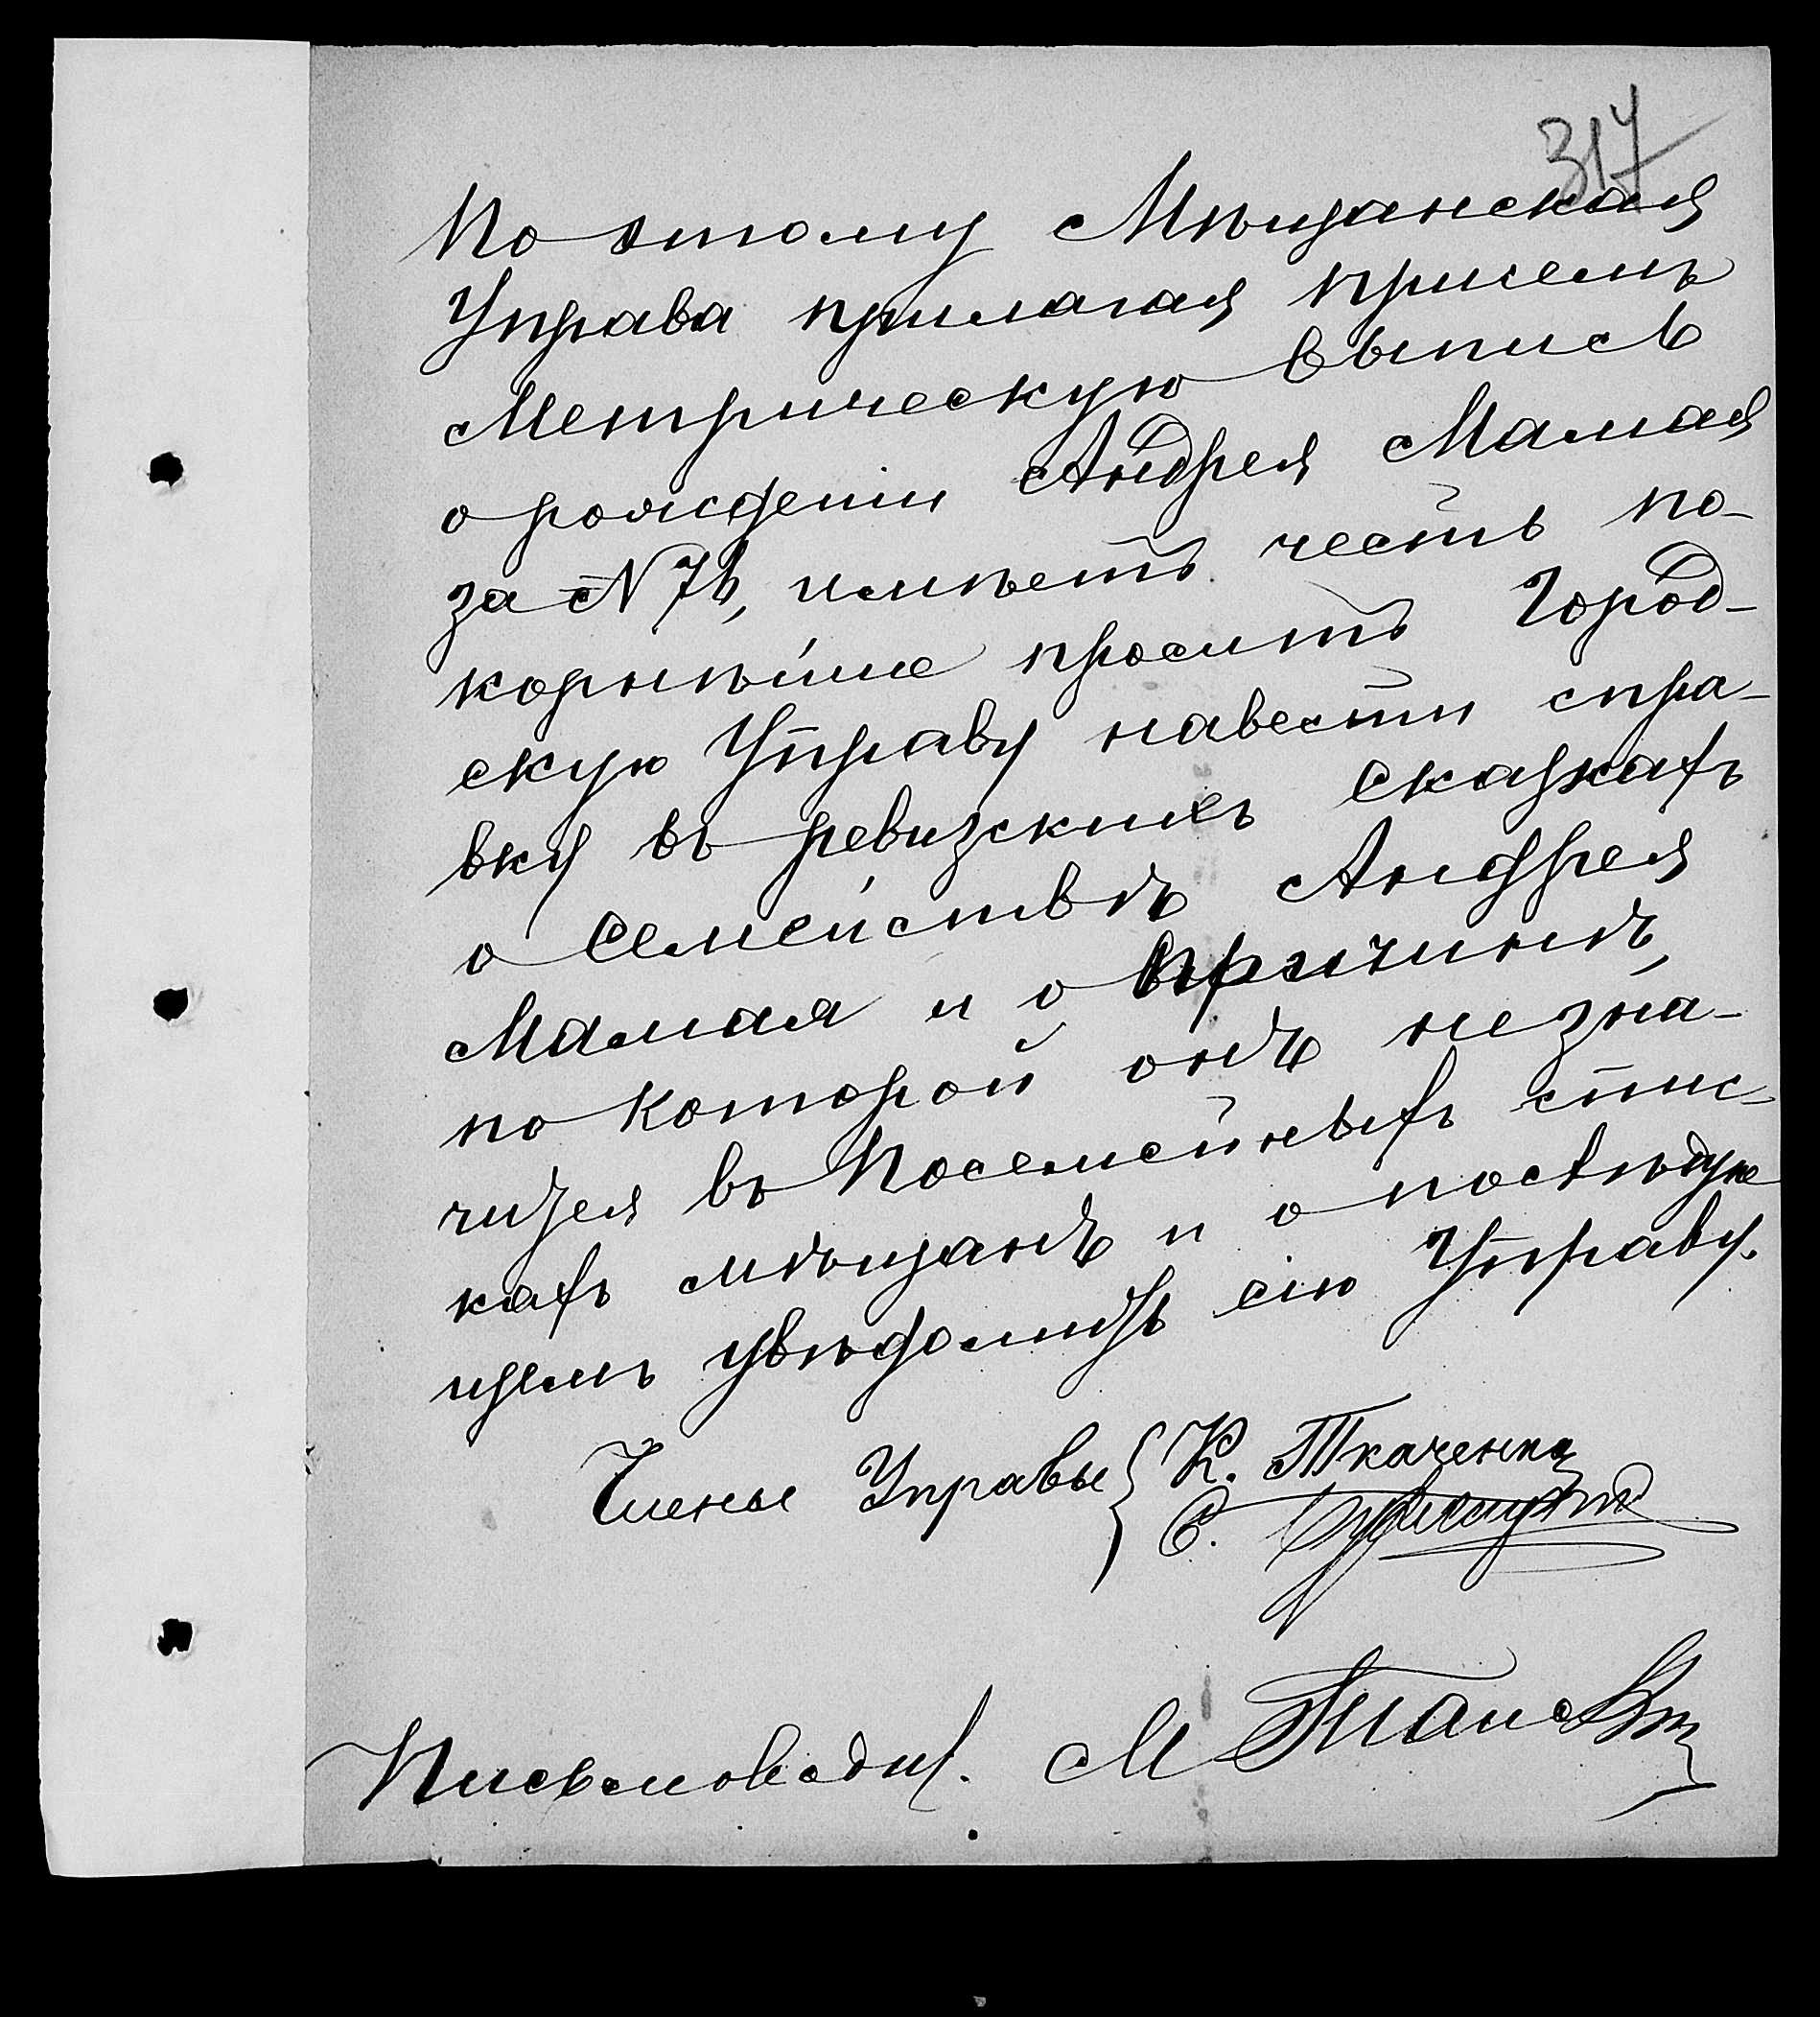 317
По этому Мѣщанская
Управа прилагая присемъ
Метрическую выпись
о рожденіи Андрея Мамая
за №
, имѣетъ честь по-
корнѣйше просить Город-
скую Управу навести спра-
вку въ ревизскихъ сказкахъ
о Семействѣ Андрея
Мамая и о причинѣ,
по которой онъ незна-
чится въ Посемейныхъ спис-
кахъ мѣщанъ и о послѣдую
щемъ увѣдомить сію Управу.
Члены Управы { К. Ткаченко
С.
Письмоводит. М